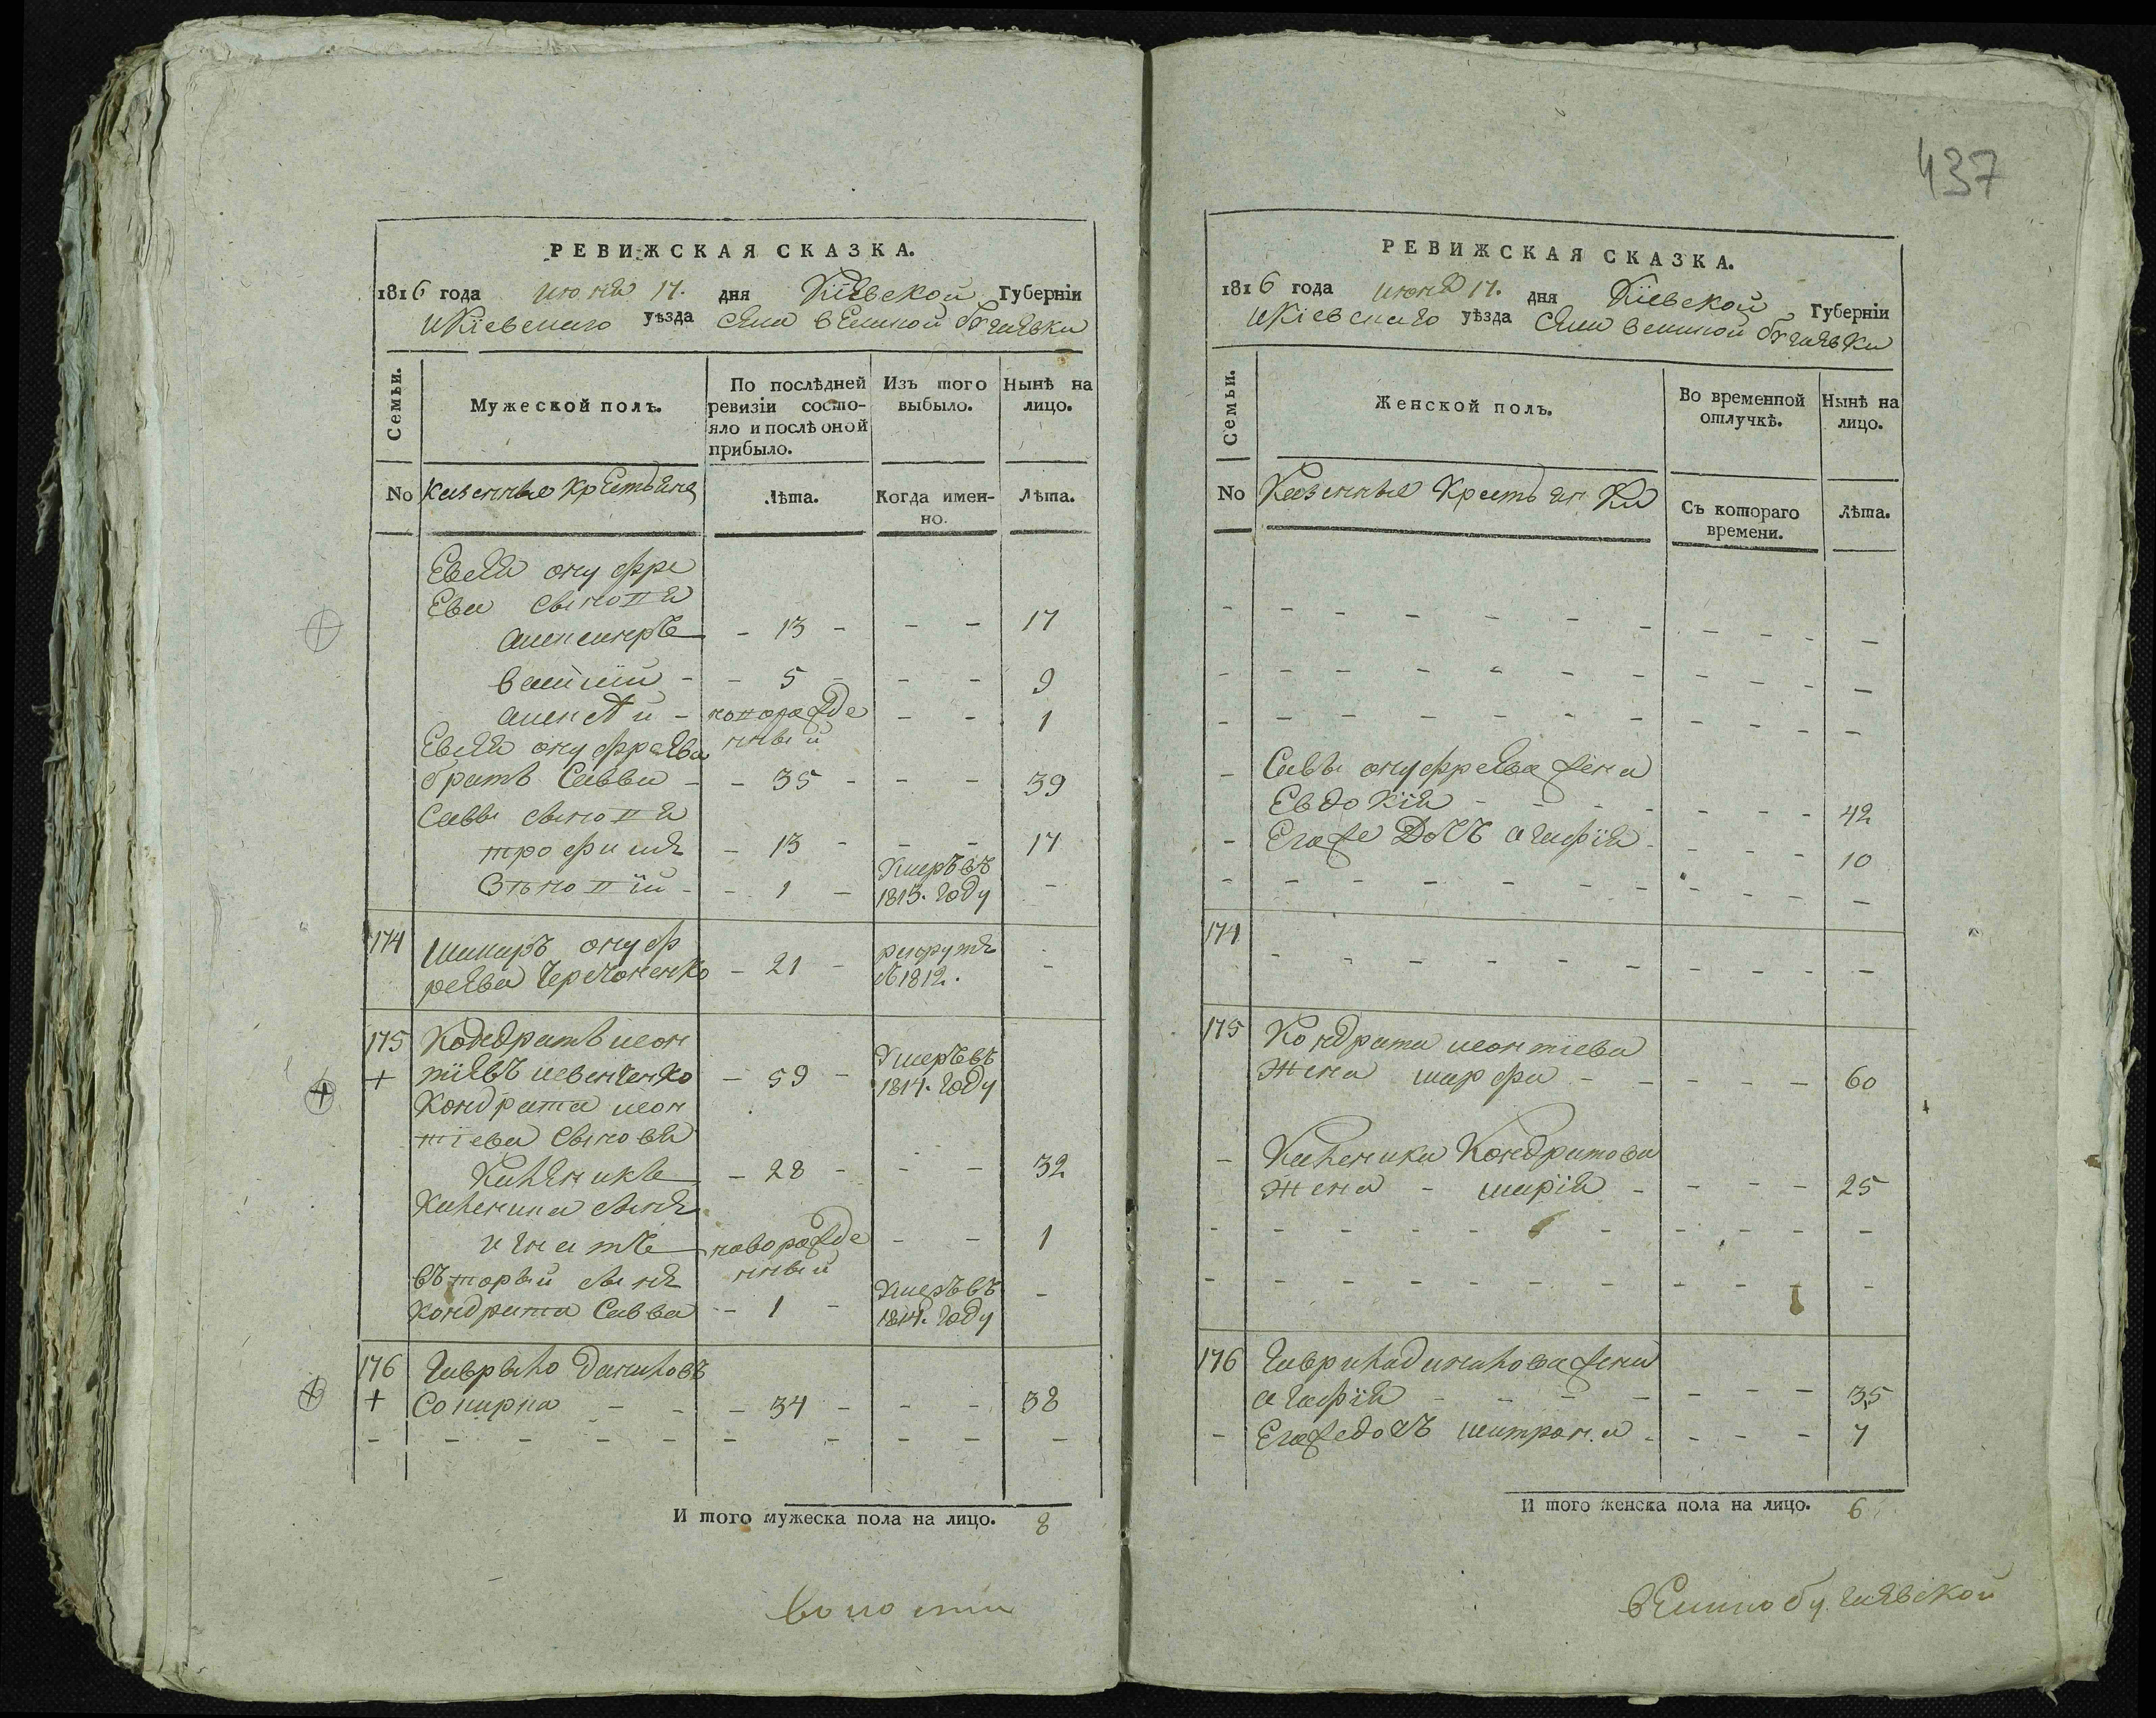 437
РЕВИЖСКАЯ СКАЗКА.
1816 года июня 17. дня Кіевской Губерніи
Кіевскаго уѣзда села великой бугаевки
Семьи.
Мужеской полъ.
По послѣдней ревизіи состо-
яло и послѣ оной
прибыло.
Изъ того
выбыло.
Нынѣ на
лицо.
No казенные крестьяне
Лѣта.
Когда имен-
но.
Лѣта.
онуфре
ева сыновя
александръ - 13 - - - 17
василий - - 5 - - - 9
алексей - новорожде - - 1
онуфреева нный
братъ Савва - - 35 - - - 39
Саввы сыновя
трофимъ - 13 - - - 17
Зѣновій - - 1 - Умеръ въ
1813. году -
174 онуф
реева - 21 - рекрутъ
1812. -
175 Кондратъ леон
+ тіевъ левченко - 59 - Умеръ въ
1814. году
Кондрата леон
тіева сыновя
Каленикъ - 28 - - - 32
Каленика сынъ
игнатъ новорожде - - 1
нный
вторый сынъ
кондрата Савва - 1 - Умеръ въ
1814. году -
176 Гаврыло даниловъ
+ - - - 34 - - - 38
- - - - - - - - - -
И того мужеска пола на лицо. 8
волости
РЕВИЖСКАЯ СКАЗКА.
1816 года июня 17. дня Кіевской Губерніи
Кіевскаго уѣзда села великой бугаевки
Семьи.
Женской полъ.
Во временной
отлучкѣ.
Нынѣ на
лицо.
No Казенные крестьянки
Съ котораго
времени.
Лѣта.
- Саввы онуфреева жена
Евдокія - - - - - - - 42
- Егоже дочъ агафія - - - - 10
174
175 Кондрата леонтіева
жена марфа - - - - - 60
- Каленика Кондратова
жена - марія - - - - 25
176 Гаврила данилова жена
агафія - - - - - - - 35
- Егоже дочъ матрона - - - - 7
И того женска пола на лицо. 6
великобугаевской